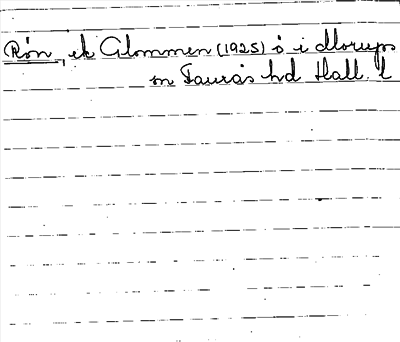 Rön, ek Glommen (1925) å i Morups
sn Faurås hd Hall. l